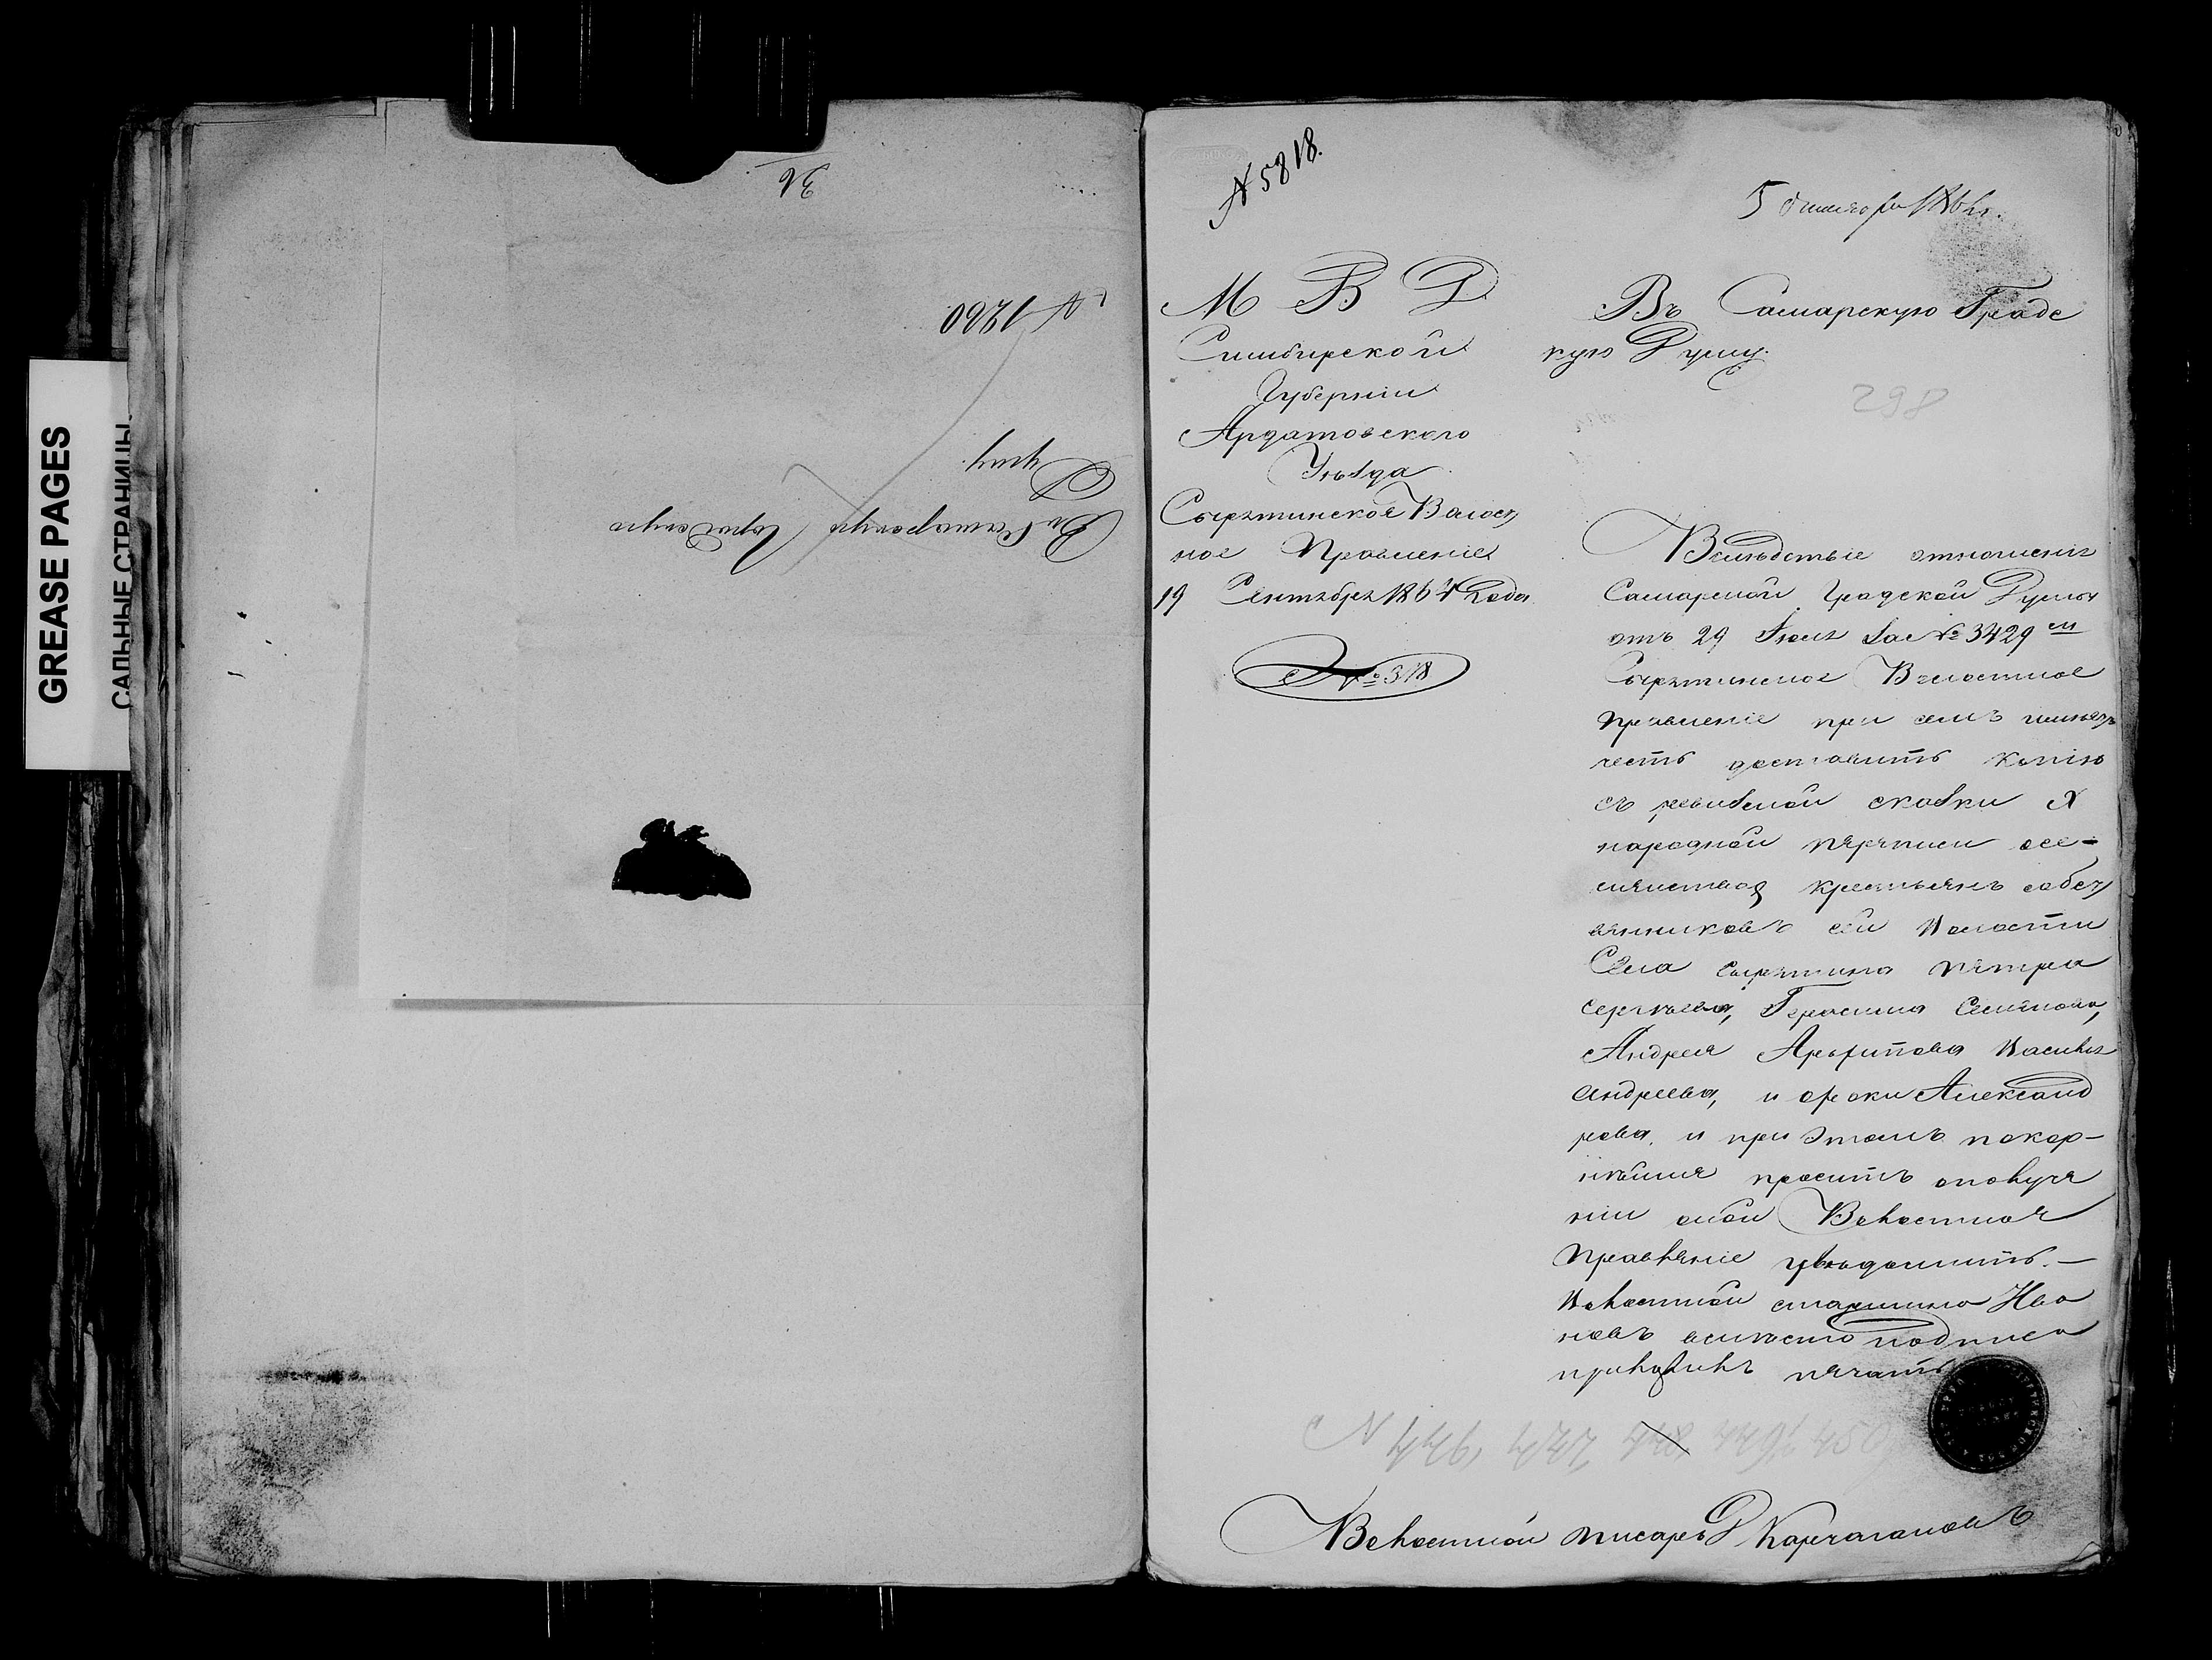 GREASE PAGES
САЛЬНЫЕ СТРАНИЦЫ
36
№ 1260
Въ Самарскую Городскую
Думу.
№ 5818.
5 октября 1864 г.
М В Д
Симбирской
Губерніи
Ардатовского
Уѣзда
Сырятинское Валост
ное Правленіе
19 Сентября 1864 Года
№ 318
Въ Самарскую Градс
кую Думу.
298
Вслѣдствіе отношенія
Самарской Градской Думы
от 29 Іюля За № 3429 м
Сырятинское Волостное
Правленіе при семъ имѣетъ
честь доставить копію
съ ревизской сказки X
народной переписи
крестьянъ собст
венниковъ сей Волости
Села Сырятина Петра
Сергѣева, Герасима Семенова,
Андрея Архипова Василья
Андреева, и Александ
рова, и при этомъ покор-
нѣйше просить о получе
ніи оной Волостное
Правленіе увѣдомить. —
Волостной старшина Ива
новъ вмѣсто подписа
приложилъ печать
№ 446, 447, 448 449, 450
Волостной писарь